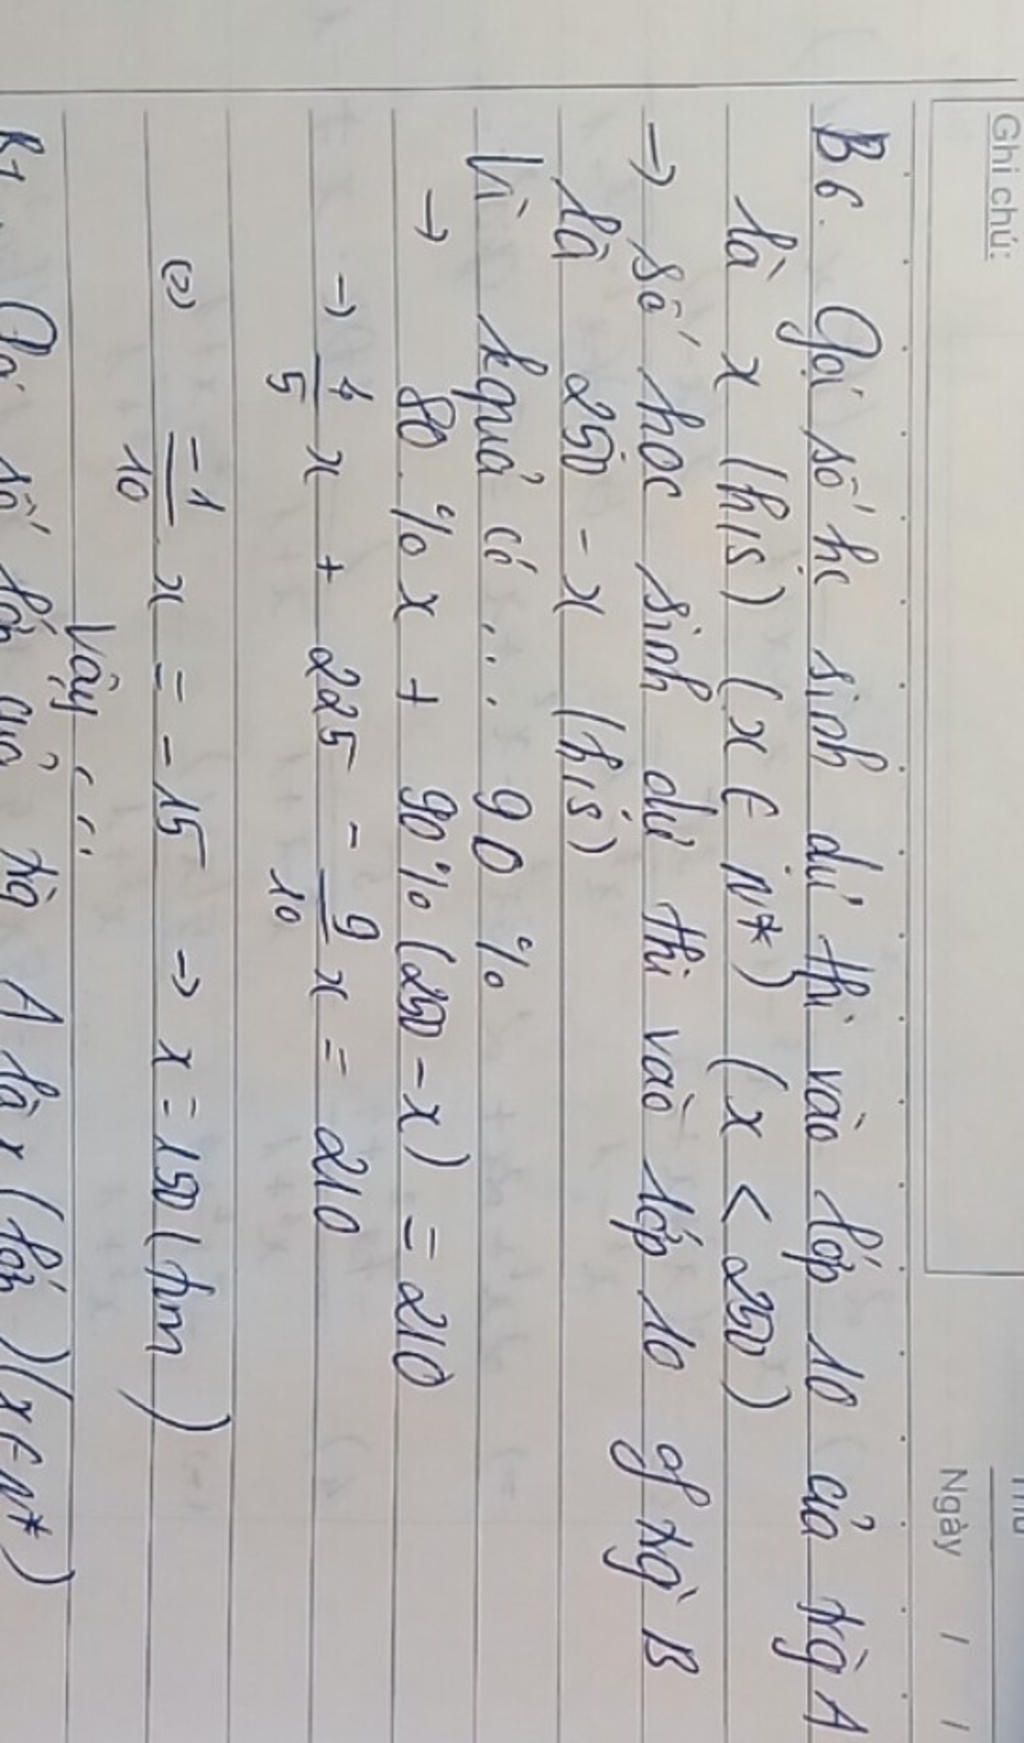 Ghi chú:
Ngày / /
B6. Gọi số hc sinh dự thi vào lớp 10 của trg A
là x (h/s) (x ∈ N*) (x < 250)
→ số học sinh dự thi vào lớp 10 of trg B
là 250 - x (h/s)
Vì kquả có ... 90 %
→ 80. % x + 90% (250 - x) = 210
→ 4/5 x + 225 - 9/10 x = 210
(=) -1/10 x = -15 → x = 150 (tm)
Vậy ...
Gọi số sản quả trg A là x ( ) (x ∈ N*)